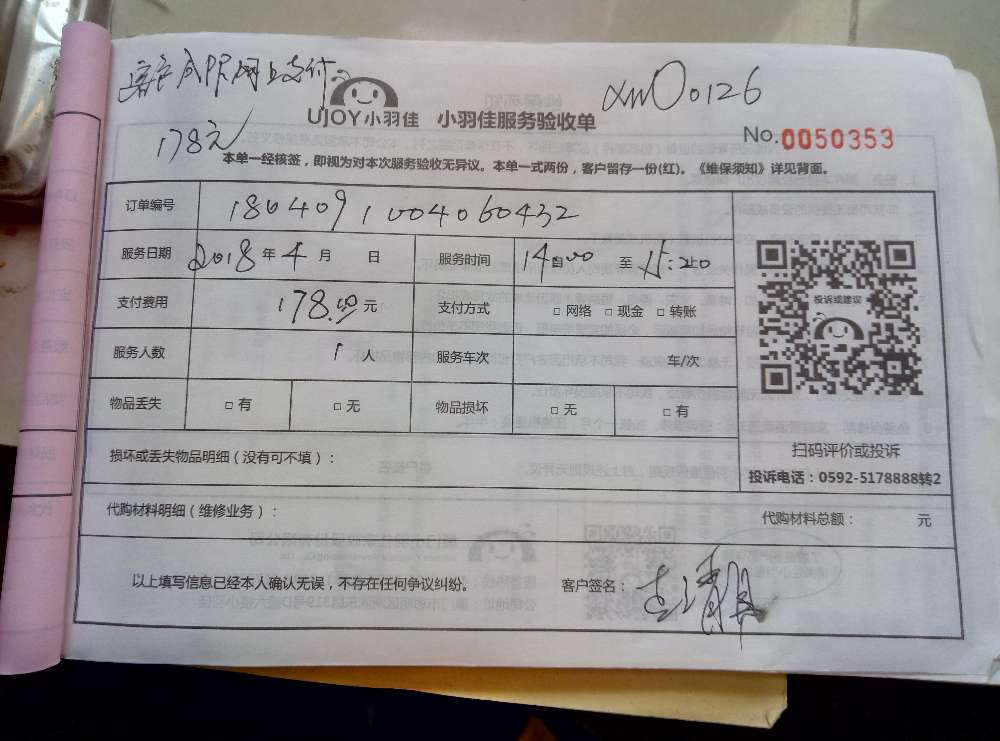 网上支付
178元
XMU00126
UJOY小羽佳 小羽佳服务验收单
No.0050353
本单一经核签，即视为对本次服务验收无异议。本单一式两份，客户留存一份(红)。《维保须知》详见背面。
订单编号 1804091004060432
服务日期 2018年4月 日 服务时间 14:00 至 15:20
支付费用 178.00元 支付方式 □ 网络 □ 现金 □ 转账
投诉或建议
服务人数 1人 服务车次 车/次
物品丢失 □ 有 □ 无 物品损坏 □ 无 □ 有
扫码评价或投诉
损坏或丢失物品明细（没有可不填）：
投诉电话：0592-5178888转2
代购材料明细（维修业务）： 代购材料总额： 元
以上填写信息已经本人确认无误，不存在任何争议纠纷。 客户签名：